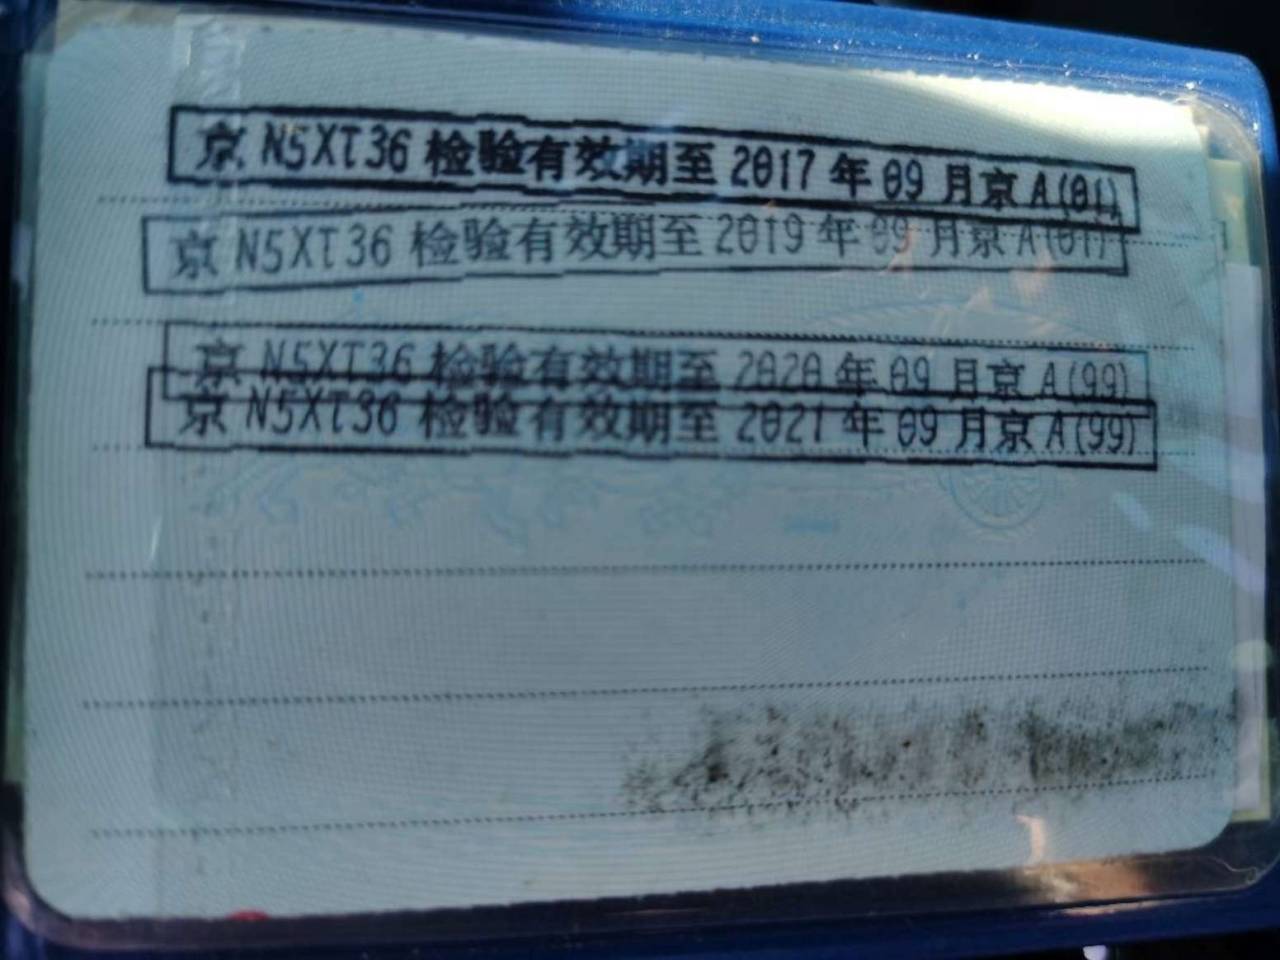 京 N5XT36 检验有效期至 2017 年 09 月京 A(01)
京 N5XT36 检验有效期至 2019 年 09 月京 A(01)
京 N5XT36 检验有效期至 2020 年 09 月京 A(99)
京 N5XT36 检验有效期至 2021 年 09 月京 A(99)